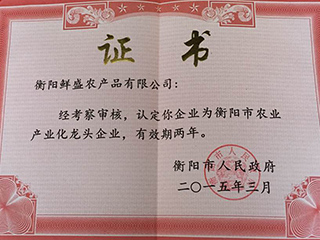 证书
衡阳鲜盛农产品有限公司：
经考察审核，认定你企业为衡阳市农业
产业化龙头企业，有效期两年。
衡阳市人民政府
二〇一五年三月